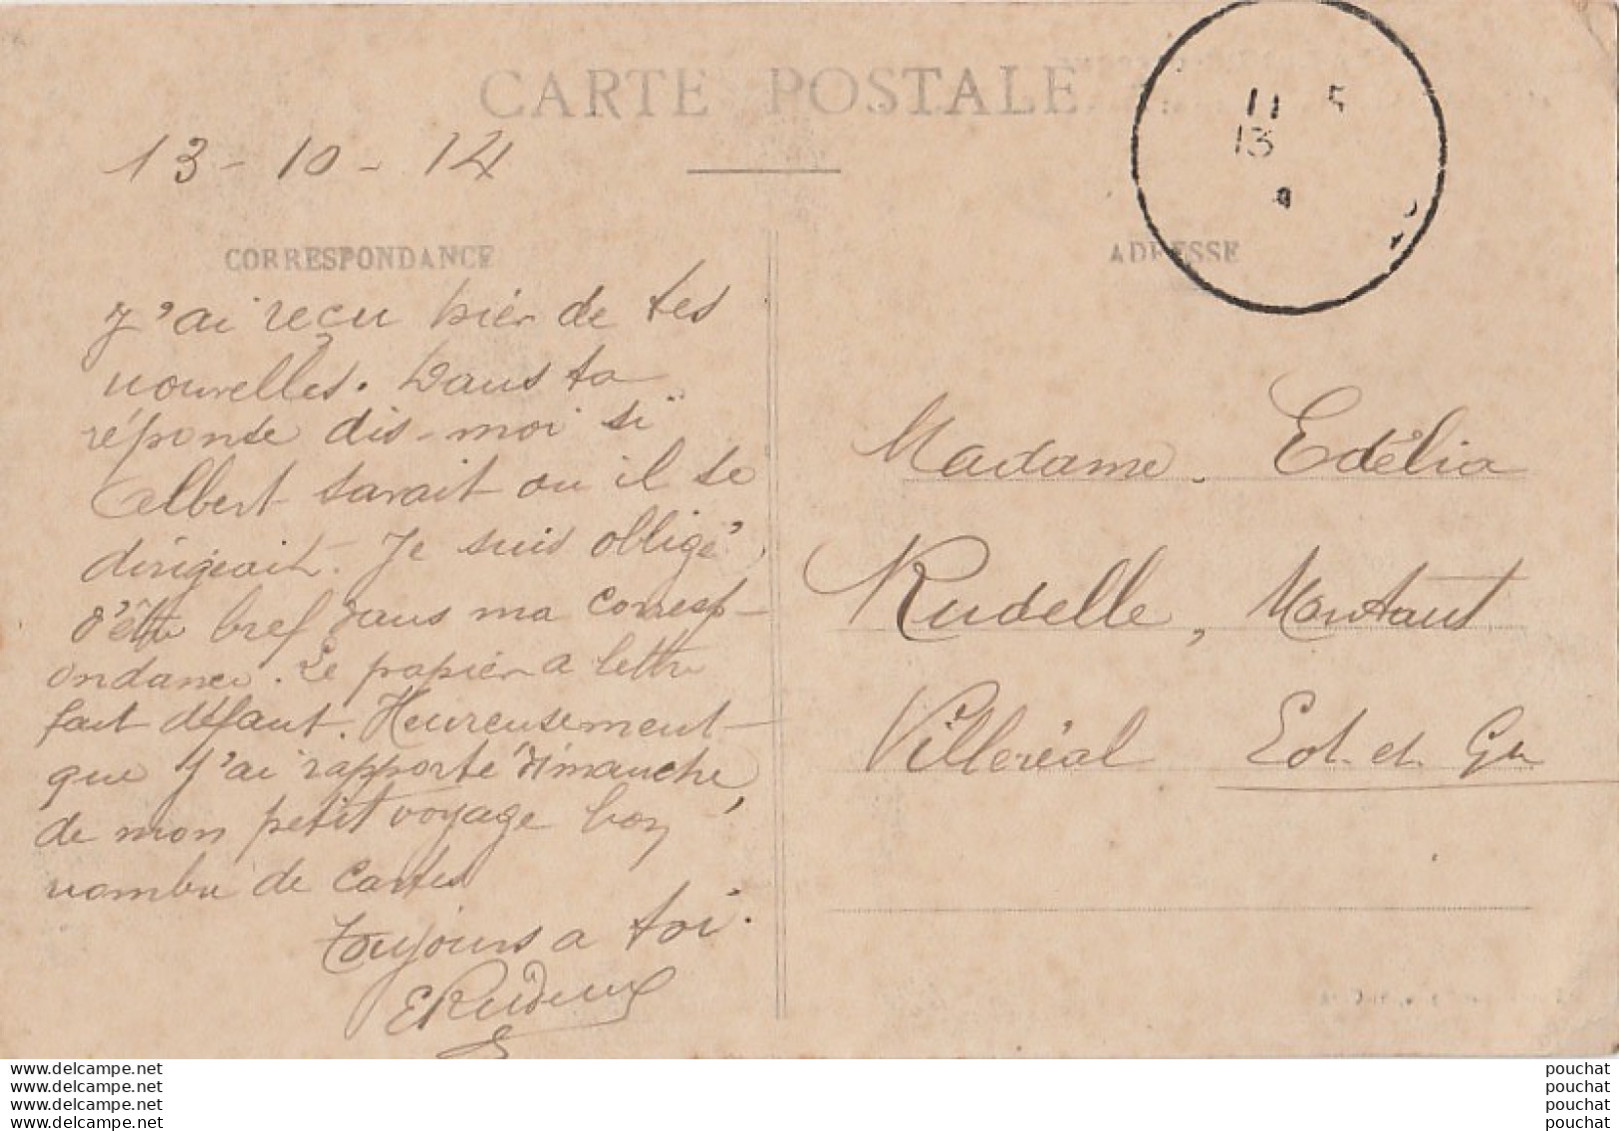 CARTE POSTALE
13-10-14
CORRESPONDANCE
J'ai reçu hier de tes
nouvelles. Dans ta
réponse dis-moi si
Albert savait ou il se
dirigeait. Je suis obligé
d'être bref dans ma corresp-
ondance. Le papier a lettre
fait défaut. Heureusement
que j'ai rapporté dimanche,
de mon petit voyage bon
nombre de cartes
Toujours a toi.
11 5
13
ADRESSE
Madame Edélia
Rudelle, Montaut
Villeréal Lot. et. Gne
www.delcampe.net
www.delcampe.net
www.delcampe.net
www.delcampe.net
pouchat
pouchat
pouchat
pouchat